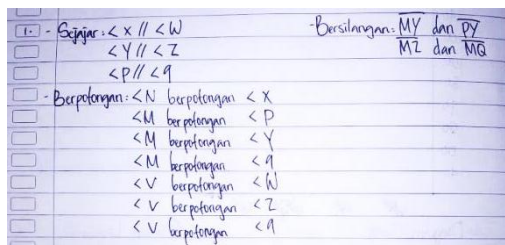 1. - Sejajar: < x // < W
< Y // < Z
< P // < q
- Berpotongan: < N berpotongan < X
< M berpotongan < P
< M berpotongan < Y
< M berpotongan < q
< V berpotongan < W
< V berpotongan < Z
< V berpotongan < q
- Bersilangan: MY dan PY
MZ dan MQ